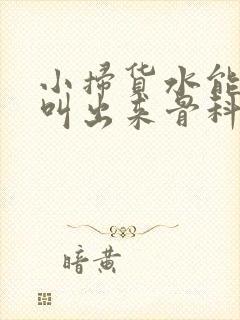 小掃货水能
叫出来骨科
暗黄